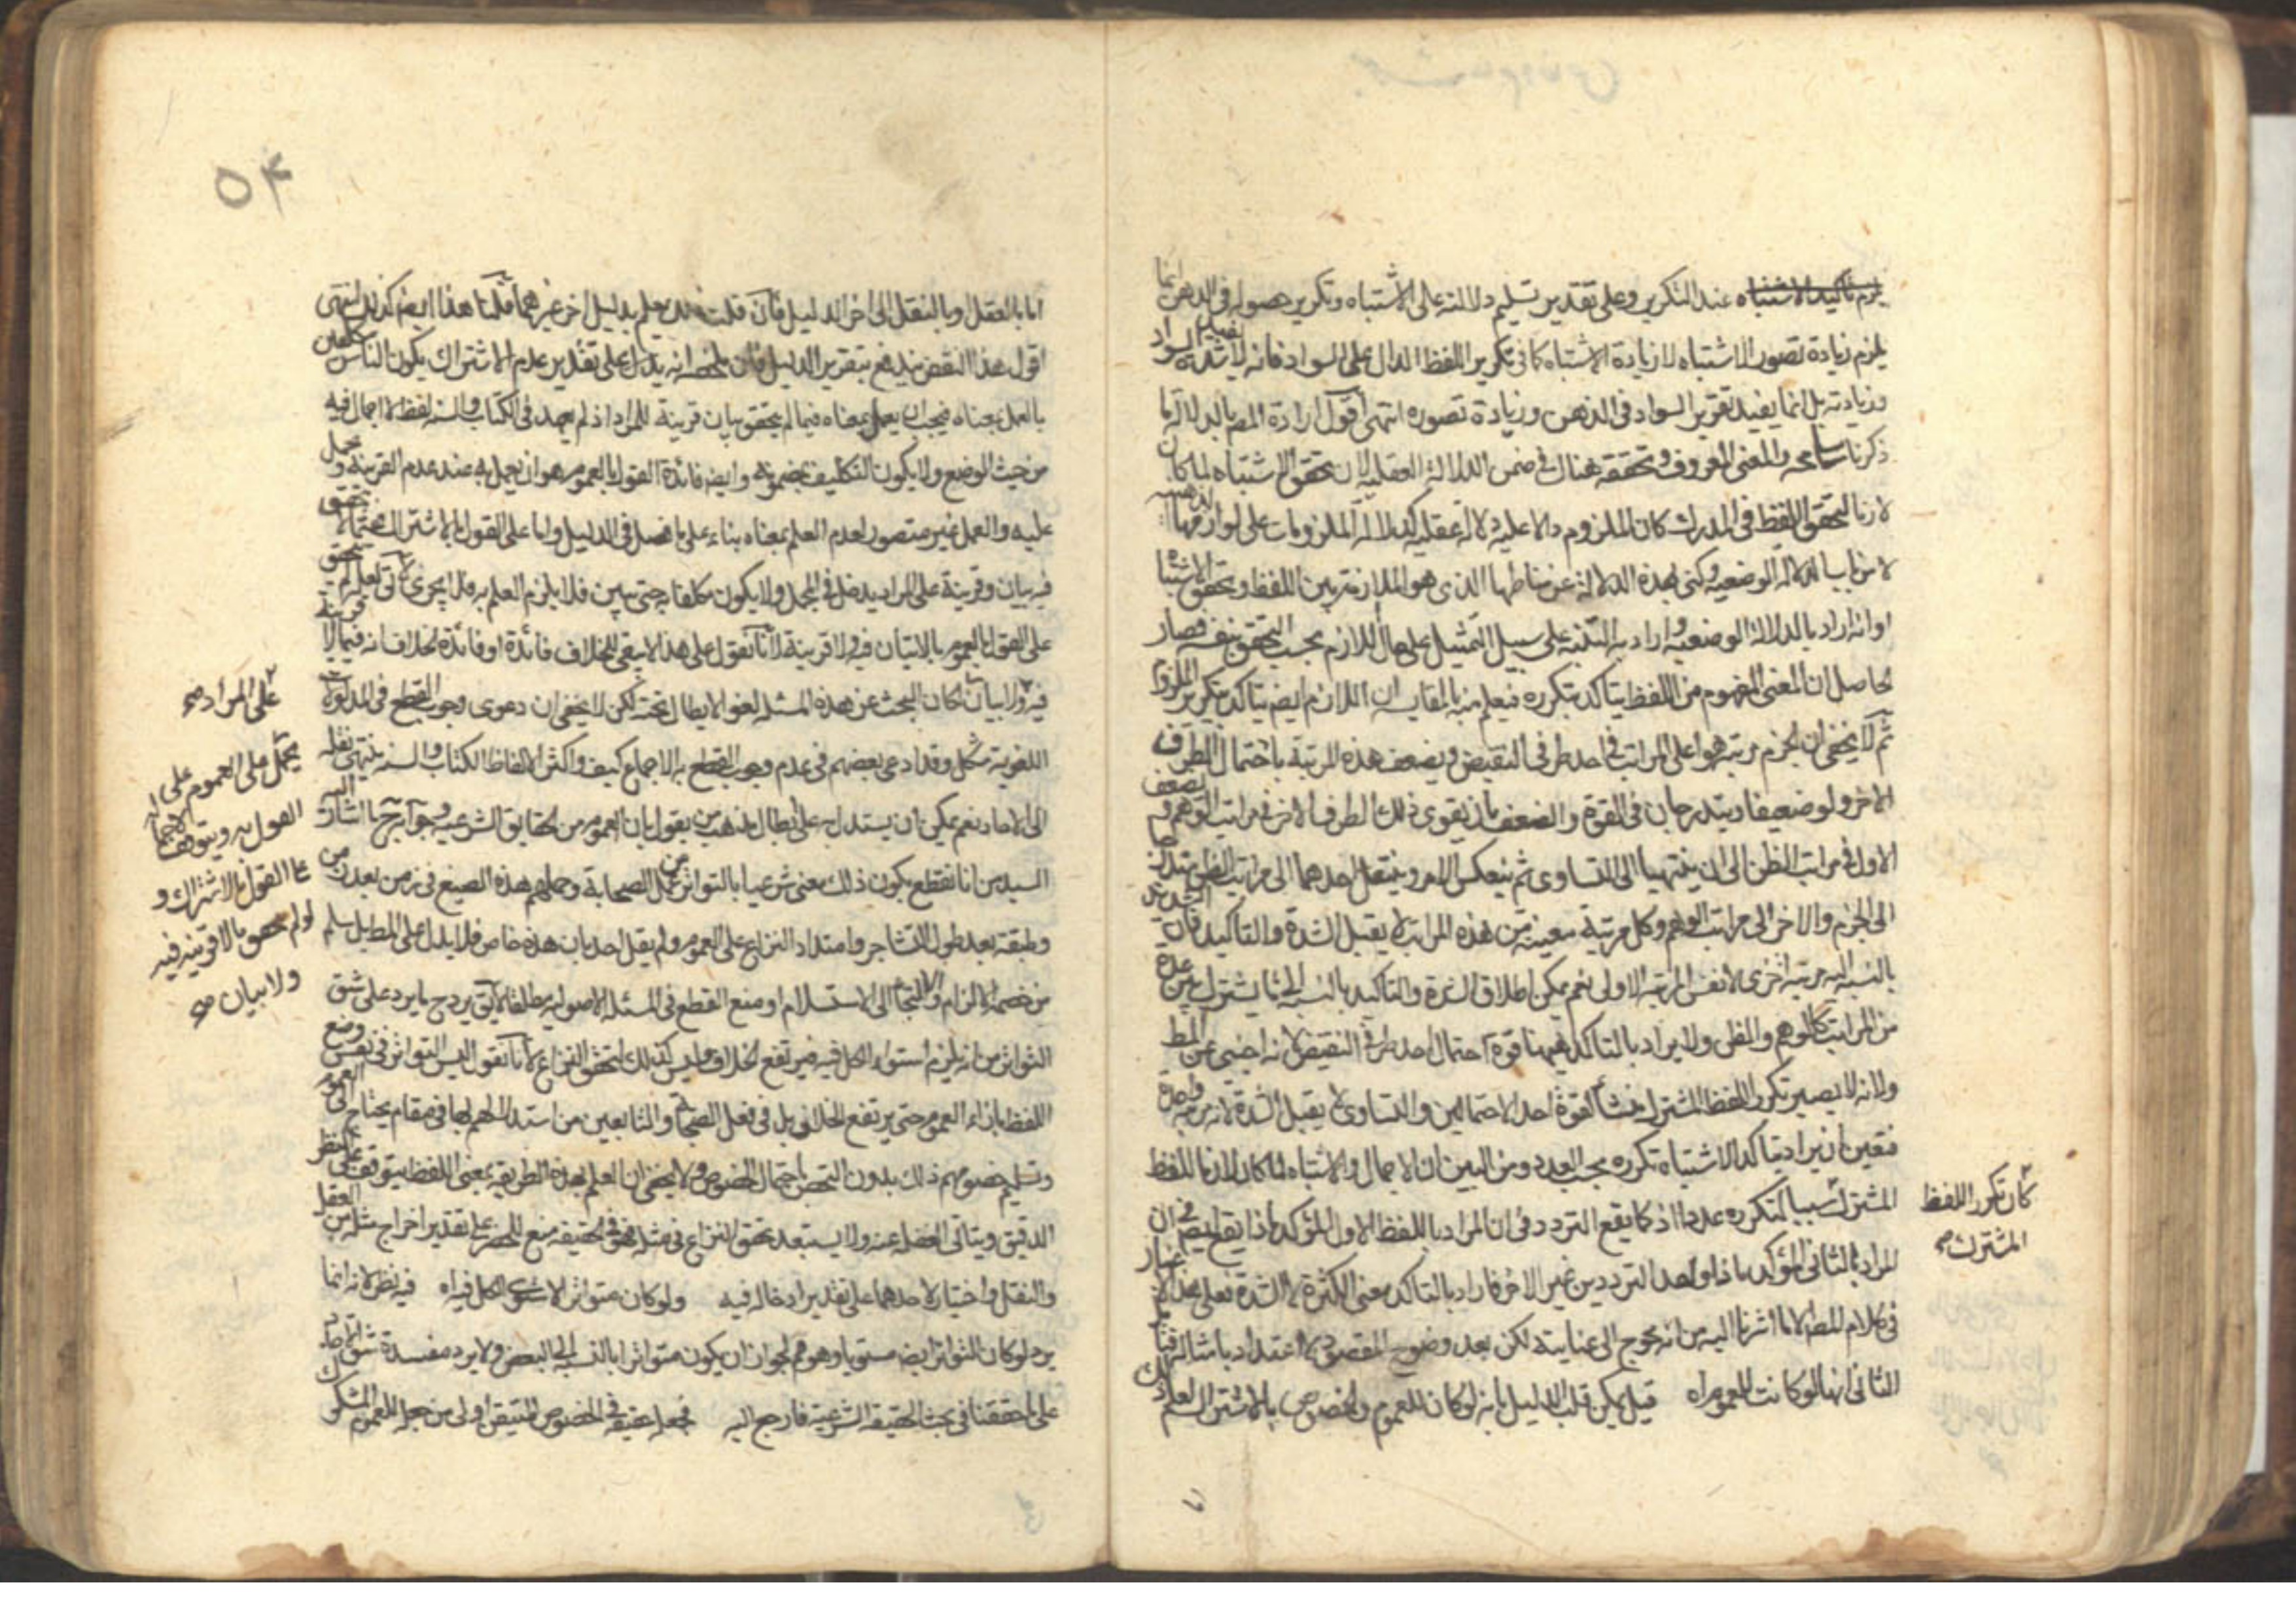 عند التكرير وعلى تقدير تسليم دلالته على الاشتباه وتكرير حصوله فى الذهن انما
يلزم زيادة تصور الاشتباه لا زيادة الاشتباه كما فى تكرير اللفظ الدال على السواد فانه لا يفيد شدة السواد
وزيادته بل انما يفيد تقرير السواد فى الذهن وزيادة تصوره انتهى اقول ارادة المص بالدلالة ما
ذكرنا المعنى المعروف وتحققه هناك فى ضمن الدلالة العقلية لان تحقق الاشتباه لما كان
لازما لتحقق اللفظ فى المدرك كان الملزوم دالا عليه دلالة عقلية كدلالة الملزومات على لوازمها
الدلالة الوضعية وكنى بهذه الدلالة عن مناطها الذى هو الملازمة بين اللفظ وتحقق الاشتباه
او انه اراد بالدلالة الوضعية واراد به التنبه على سبيل التمثيل على حال اللازم بحسب التحقق فصار
الحاصل ان المعنى المفهوم من اللفظ يتاكد بتكرره فيعلم منه بالمقايسة ان اللازم ايضا يتاكد بتكرير الملزوم
ثم لا يخفى ان الجزم مرتبة هو اعلى المراتب فى احد طرفى النقيض ويضعف هذه المرتبة باحتمال الطرف
الاخر ولو ضعيفا ويتدرجان فى القوة والضعف بان يقوى ذلك الطرف الاخر فى مراتب الوهم ويضعف
الاول فى مراتب الظن الى ان ينتهيا الى التساوى ثم ينعكس الامر وينتقل احدهما الى مراتب الظن
الى الجزم والاخر الى مراتب الوهم وكل مرتبة معينة من هذه المراتب لا يقبل الشدة والتاكيد فان
بالنسبة اليه مرتبة اخرى لا نفس المرتبة الاولى نعم يمكن اطلاق الشدة والتاكيد بالنسبة الى ما يشترك بين عدة
من المراتب كالوهم والظن ولا يراد بالتاكد ههنا قوة احتمال احد طرفى النقيض لانه اجنبى عن المط
ولانه لا يصير تكرر اللفظ المشترك منشأ لقوة احد الاحتمالين والتساوى لا يقبل الشدة لانه مرتبة واحدة
فتعين ان يراد بتاكد الاشتباه تكرره بحسب العدد ومن البين ان الاجمال والاشتباه لما كان لازما للفظ
المشترك سببا لتكرره عددا اذ كما يقع التردد فى ان المراد باللفظ الاول المؤكد ماذا يقع ايضا فى ان
المراد بالثانى المؤكد ماذا واحد الترددين غير الاخر فاراد بالتاكد معنى الكثرة لا الشدة فعلى هذا لا غبار
فى كلام المص الا ما اشرنا اليه من انه يحوج الى عناية لكن بعد وضوح المقصود لا اعتداد بامثالها
الثانى انها لو كانت للعموم اه قيل يمكن قلب الدليل بانه لو كان للعموم والخصوص بالاشتراك لعلم
كان تكرر اللفظ
المشترك صح
٥٤
اما بالعقل وبالنقل الى اخر الدليل فان قلت يعلم بدليل اخر غيرهما قلنا هذا ايضا كذلك انتهى
اقول هذا النقض يندفع بتقرير الدليل فان ملخصه انه يدل على تقدير عدم الاشتراك يكون الناس مكلفين
بالعمل بمعناه فيجب ان يعمل بمعناه فيما لم يتحقق بيان قرينة للمراد اذ لم يعهد فى الكتاب والسنة لفظ لا اجمال فيه
من حيث الوضع ولا يكون التكليف بمضمونه وايضا فائدة القول بالعموم هو ان يعمل به عند عدم القرينة ويحمل
عليه والعمل غير متصور لعدم العلم بمعناه بناء على ما فصل فى الدليل واما على القول بالاشتراك
فيه بيان وقرينة على المراد يدخل فى المجمل ولا يكون مكلفا به حتى يبين فلا يلزم العلم به
على القول بالعموم بلا بيان فيه ولا قرينة لانا نقول على هذا لا يبقى للخلاف فائدة او فائدة الخلاف انه فيما لا قرينة
فيه ولا بيان كان البحث عن هذه المسئلة لغوا لا يطال تحته لكن لا يخفى ان دعوى وجوب القطع فى المدلولات
اللغوية مشكل وقد ادعى بعضهم فى عدم وجوب القطع به الاجماع كيف واكثر الالفاظ الكتاب والسنة ينتهى نقله
الى الاحاد نعم يمكن ان يستدل به على ابطال مذهب من يقول بان العموم من الحقايق الشرعية اشار اليه
السيد من انا نقطع بكون ذلك معنى شرعيا بالتواتر من عمل الصحابة وحملهم هذه الصيغ فى زمن بعد زمن
وطبقة بعد طول التشاجر وامتداد النزاع على العموم ولم يقل احد بان هذه خاص فلا يدل على المط
من خصمه الالزام والالتجاء الى الاستسلام او منع القطع فى المسئلة الاصولية مطلقا يرد ما يرد على شق
التواتر من انه يلزم استواء الكل فيه فيرتفع الخلاف وليس كذلك لتحقق النزاع لانا نقول ليس التواتر فى نفس وضع
اللفظ بازاء العموم حتى يرتفع الخلاف بل فى فعل الصحابة والتابعين من استدلالهم بها فى مقام يحتاج الى العموم
وتسليم خصومهم ذلك بدون التمحض باحتمال الخصوص ولا يخفى ان العلم بهذه الطريقة بمعنى اللفظ يتوقف على النظر
الدقيق ويتاتى الغفلة عنه ولا يستبعد تحقق النزاع فى مثله ففى الحقيقة منع للحصر على تقدير اخراج مثله من العقل
والنقل واختيار لاحدهما على تقدير ادخاله فيه ولو كان متواترا لاستوى الكل فيه اه فيه نظر لانه انما
يرد لو كان التواتر ايضا مستويا وهو مم لجواز ان يكون متواترا بالنسبة الى البعض ولا يرد مفسدة شق الاحاد
على ما حققنا فى بحث الحقيقة الشرعية فارجع اليه فجعله حقيقة فى الخصوص المتيقن اولى من جعله للعموم المشكوك
على المراد صح
يحمل على العموم على
القول به ويتوقف
على القول بالاشتراك و
لو لم يتحقق بالا قرينة فيه
ولا بيان صح